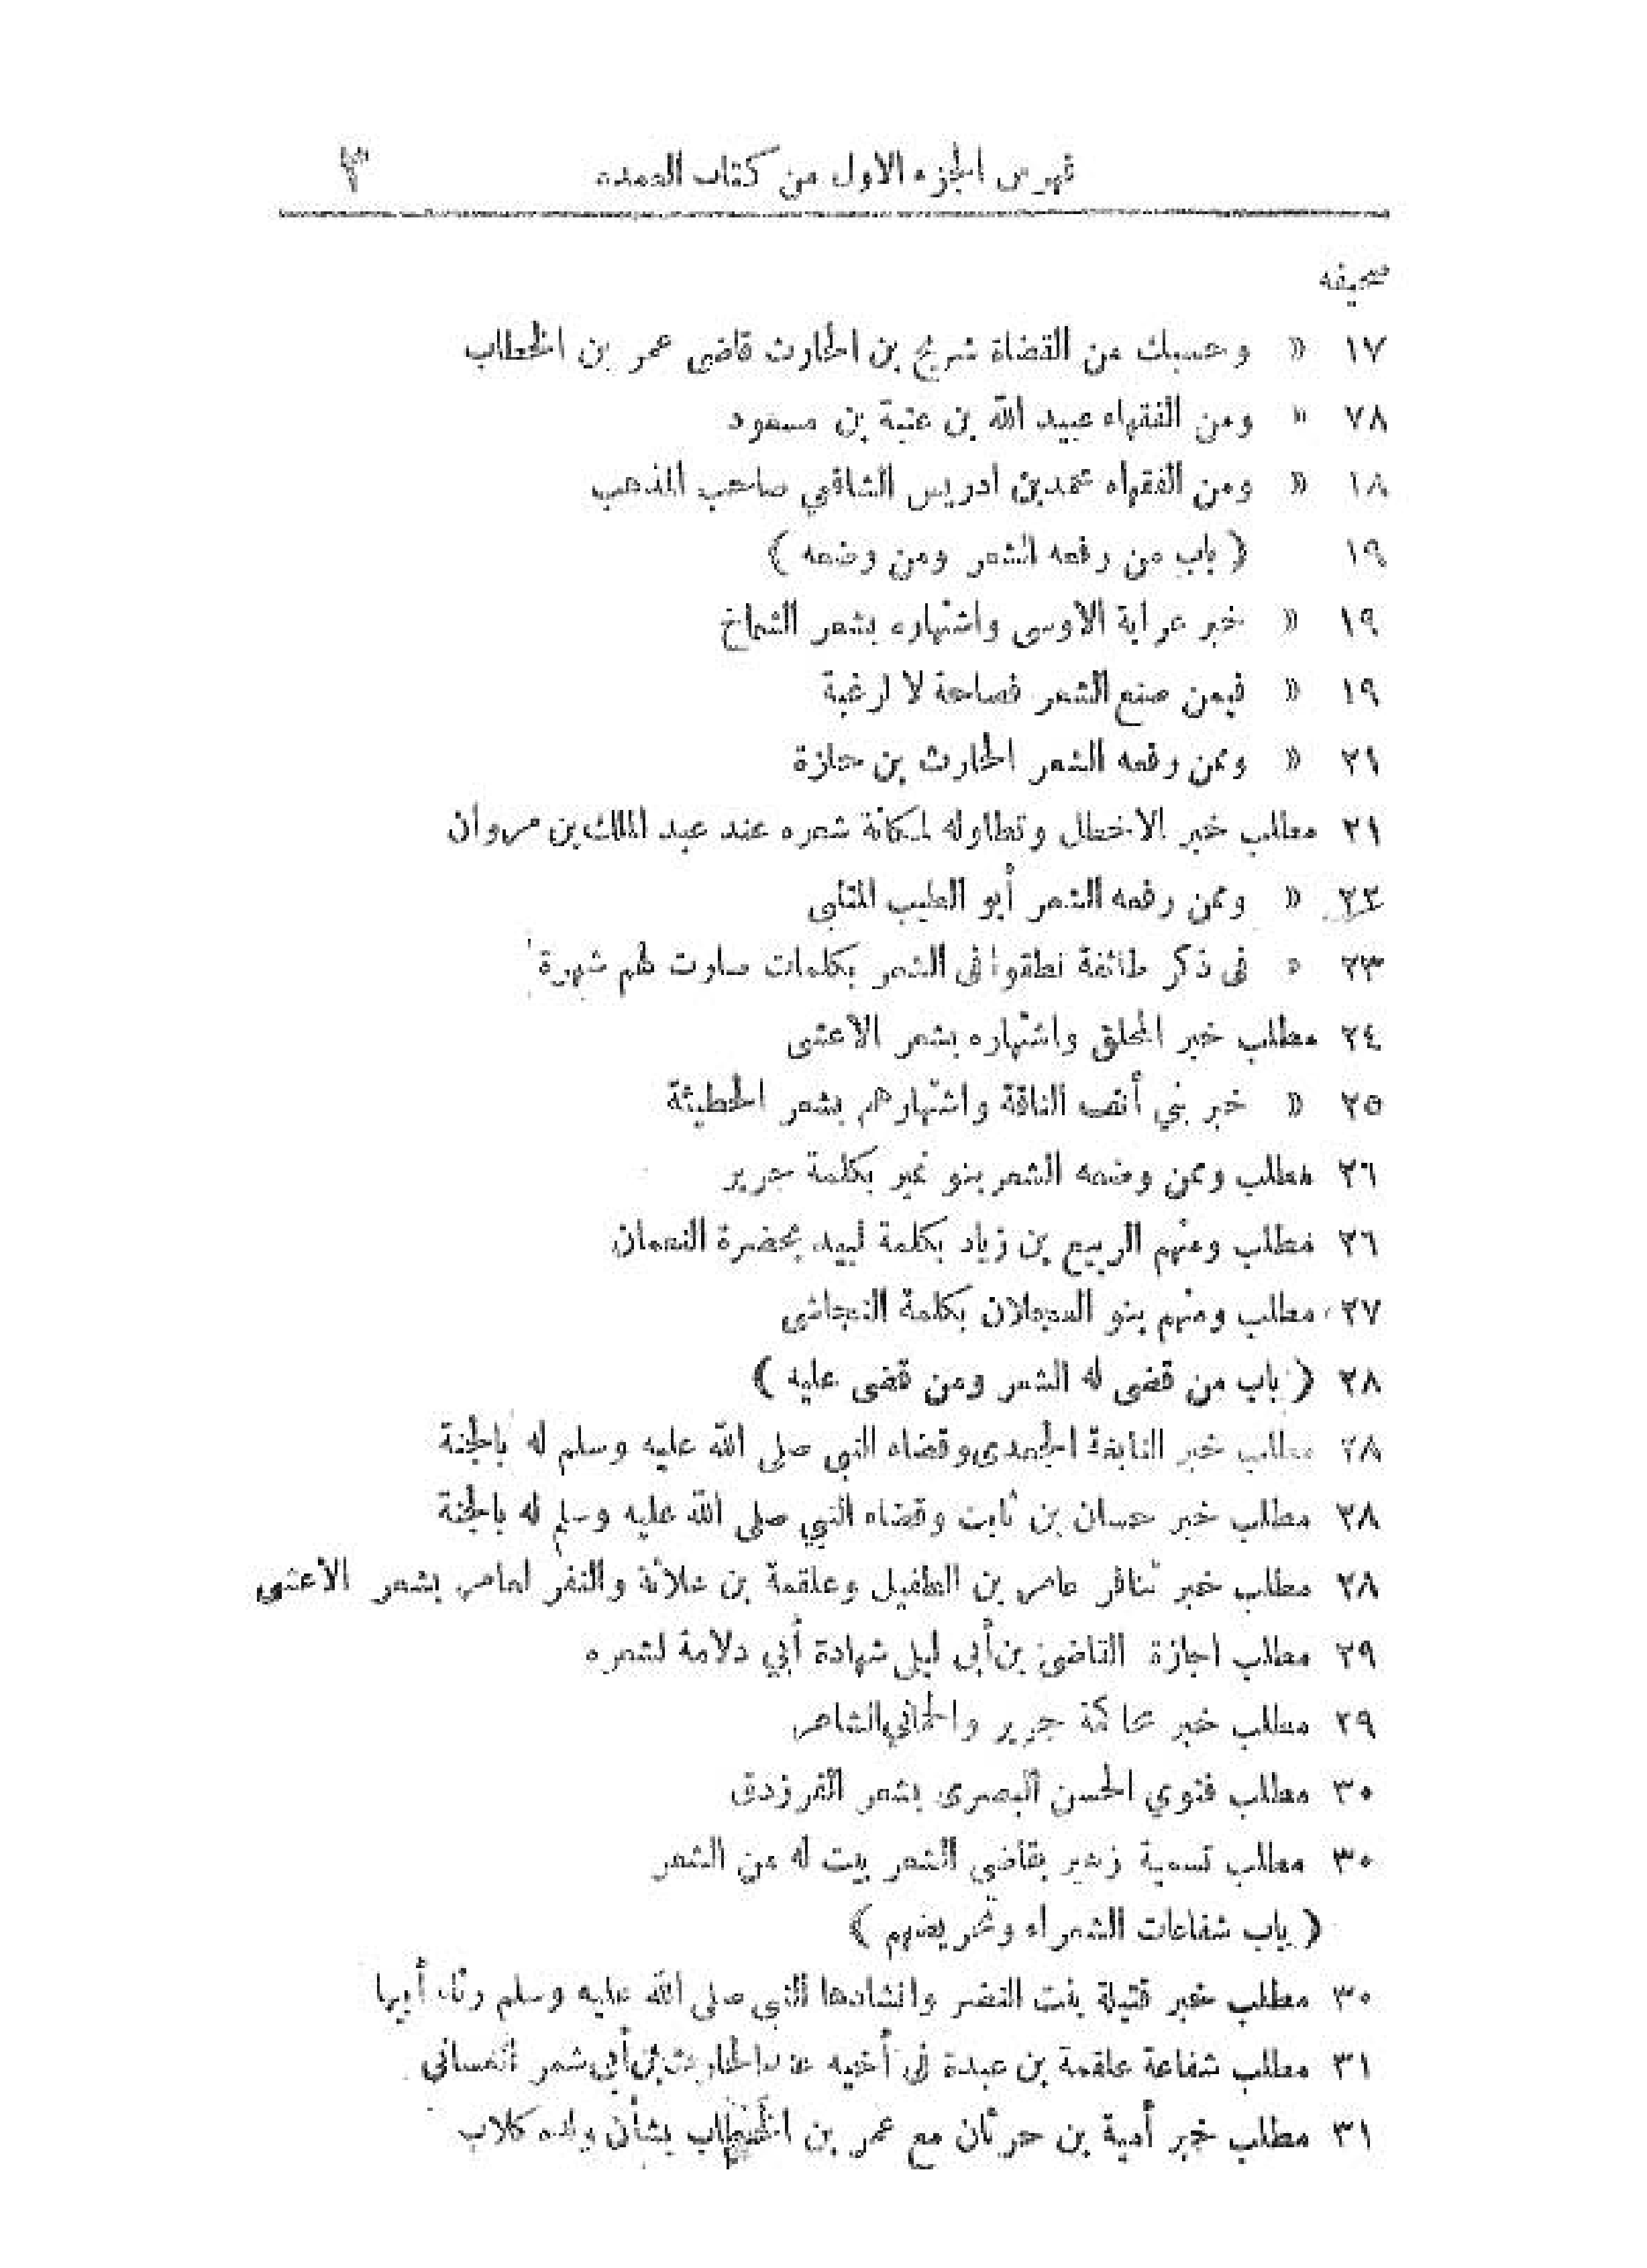 فهرس الجزء الاول من كتاب العمده ٣
صحيفه
١٧ « وحسبك من القضاة شريح بن الحارث قاضى عمر بن الخطاب
٧٨ « ومن الفقهاء عبيد الله بن عتبة بن مسعود
١٨ « ومن الفقهاء محمد بن ادريس الشافعي صاحب المذهب
١٩ ( باب من رفعه الشعر ومن وضعه )
١٩ « خبر عرابة الاوسى واشتهاره بشعر الشماخ
١٩ « فيمن صنع الشعر فصاحة لا لرغبة
٢١ « وممن رفعه الشعر الحارث بن حلزة
٢١ مطلب خبر الاخطل وتطاوله لمكانة شعره عند عبد الملك بن مروان
٢٢ « وممن رفعه الشعر أبو الطيب المتنبى
٢٣ « فى ذكر طائفة نطقوا فى الشعر بكلمات صارت لهم شهرة
٢٤ مطلب خبر المحلق واشتهاره بشعر الاعشى
٢٥ « خبر بني أنف الناقة واشتهارهم بشعر الحطيئة
٢٦ مطلب وممن وضعه الشعر بنو نمير بكلمة جرير
٢٦ مطلب ومنهم الربيع بن زياد بكلمة لبيد بحضرة النعمان
٢٧ مطلب ومنهم بنو العجلان بكلمة النجاشى
٢٨ ( باب من قضى له الشعر ومن قضى عليه )
٢٨ مطلب خبر النابغة الجعدى وقضاء النبى صلى الله عليه وسلم له بالجنة
٢٨ مطلب خبر حسان بن ثابت وقضاء النبي صلى الله عليه وسلم له بالجنة
٢٨ مطلب خبر تنافر عامر بن الطفيل وعلقمة بن علاثة والنفر لعامر بشعر الاعشى
٢٩ مطلب اجازة القاضى بن أبى ليلى شهادة أبي دلامة لشعره
٢٩ مطلب خبر محاكمة جرير والحمانى الشاعر
٣٠ مطلب فتوي الحسن البصرى بشعر الفرزدق
٣٠ مطلب تسمية زهير بقاضى الشعر بيت له من الشعر
( باب شفاعات الشعراء وتحريضهم )
٣٠ مطلب خبر قتيلة بنت النضر وانشادها النبى صلى الله عليه وسلم رثاء أبيها
٣١ مطلب شفاعة علقمة بن عبدة فى أخيه عند الحارث بن أبى شمر الغسانى
٣١ مطلب خبر أمية بن حرثان مع عمر بن الخطاب بشأن ولده كلاب